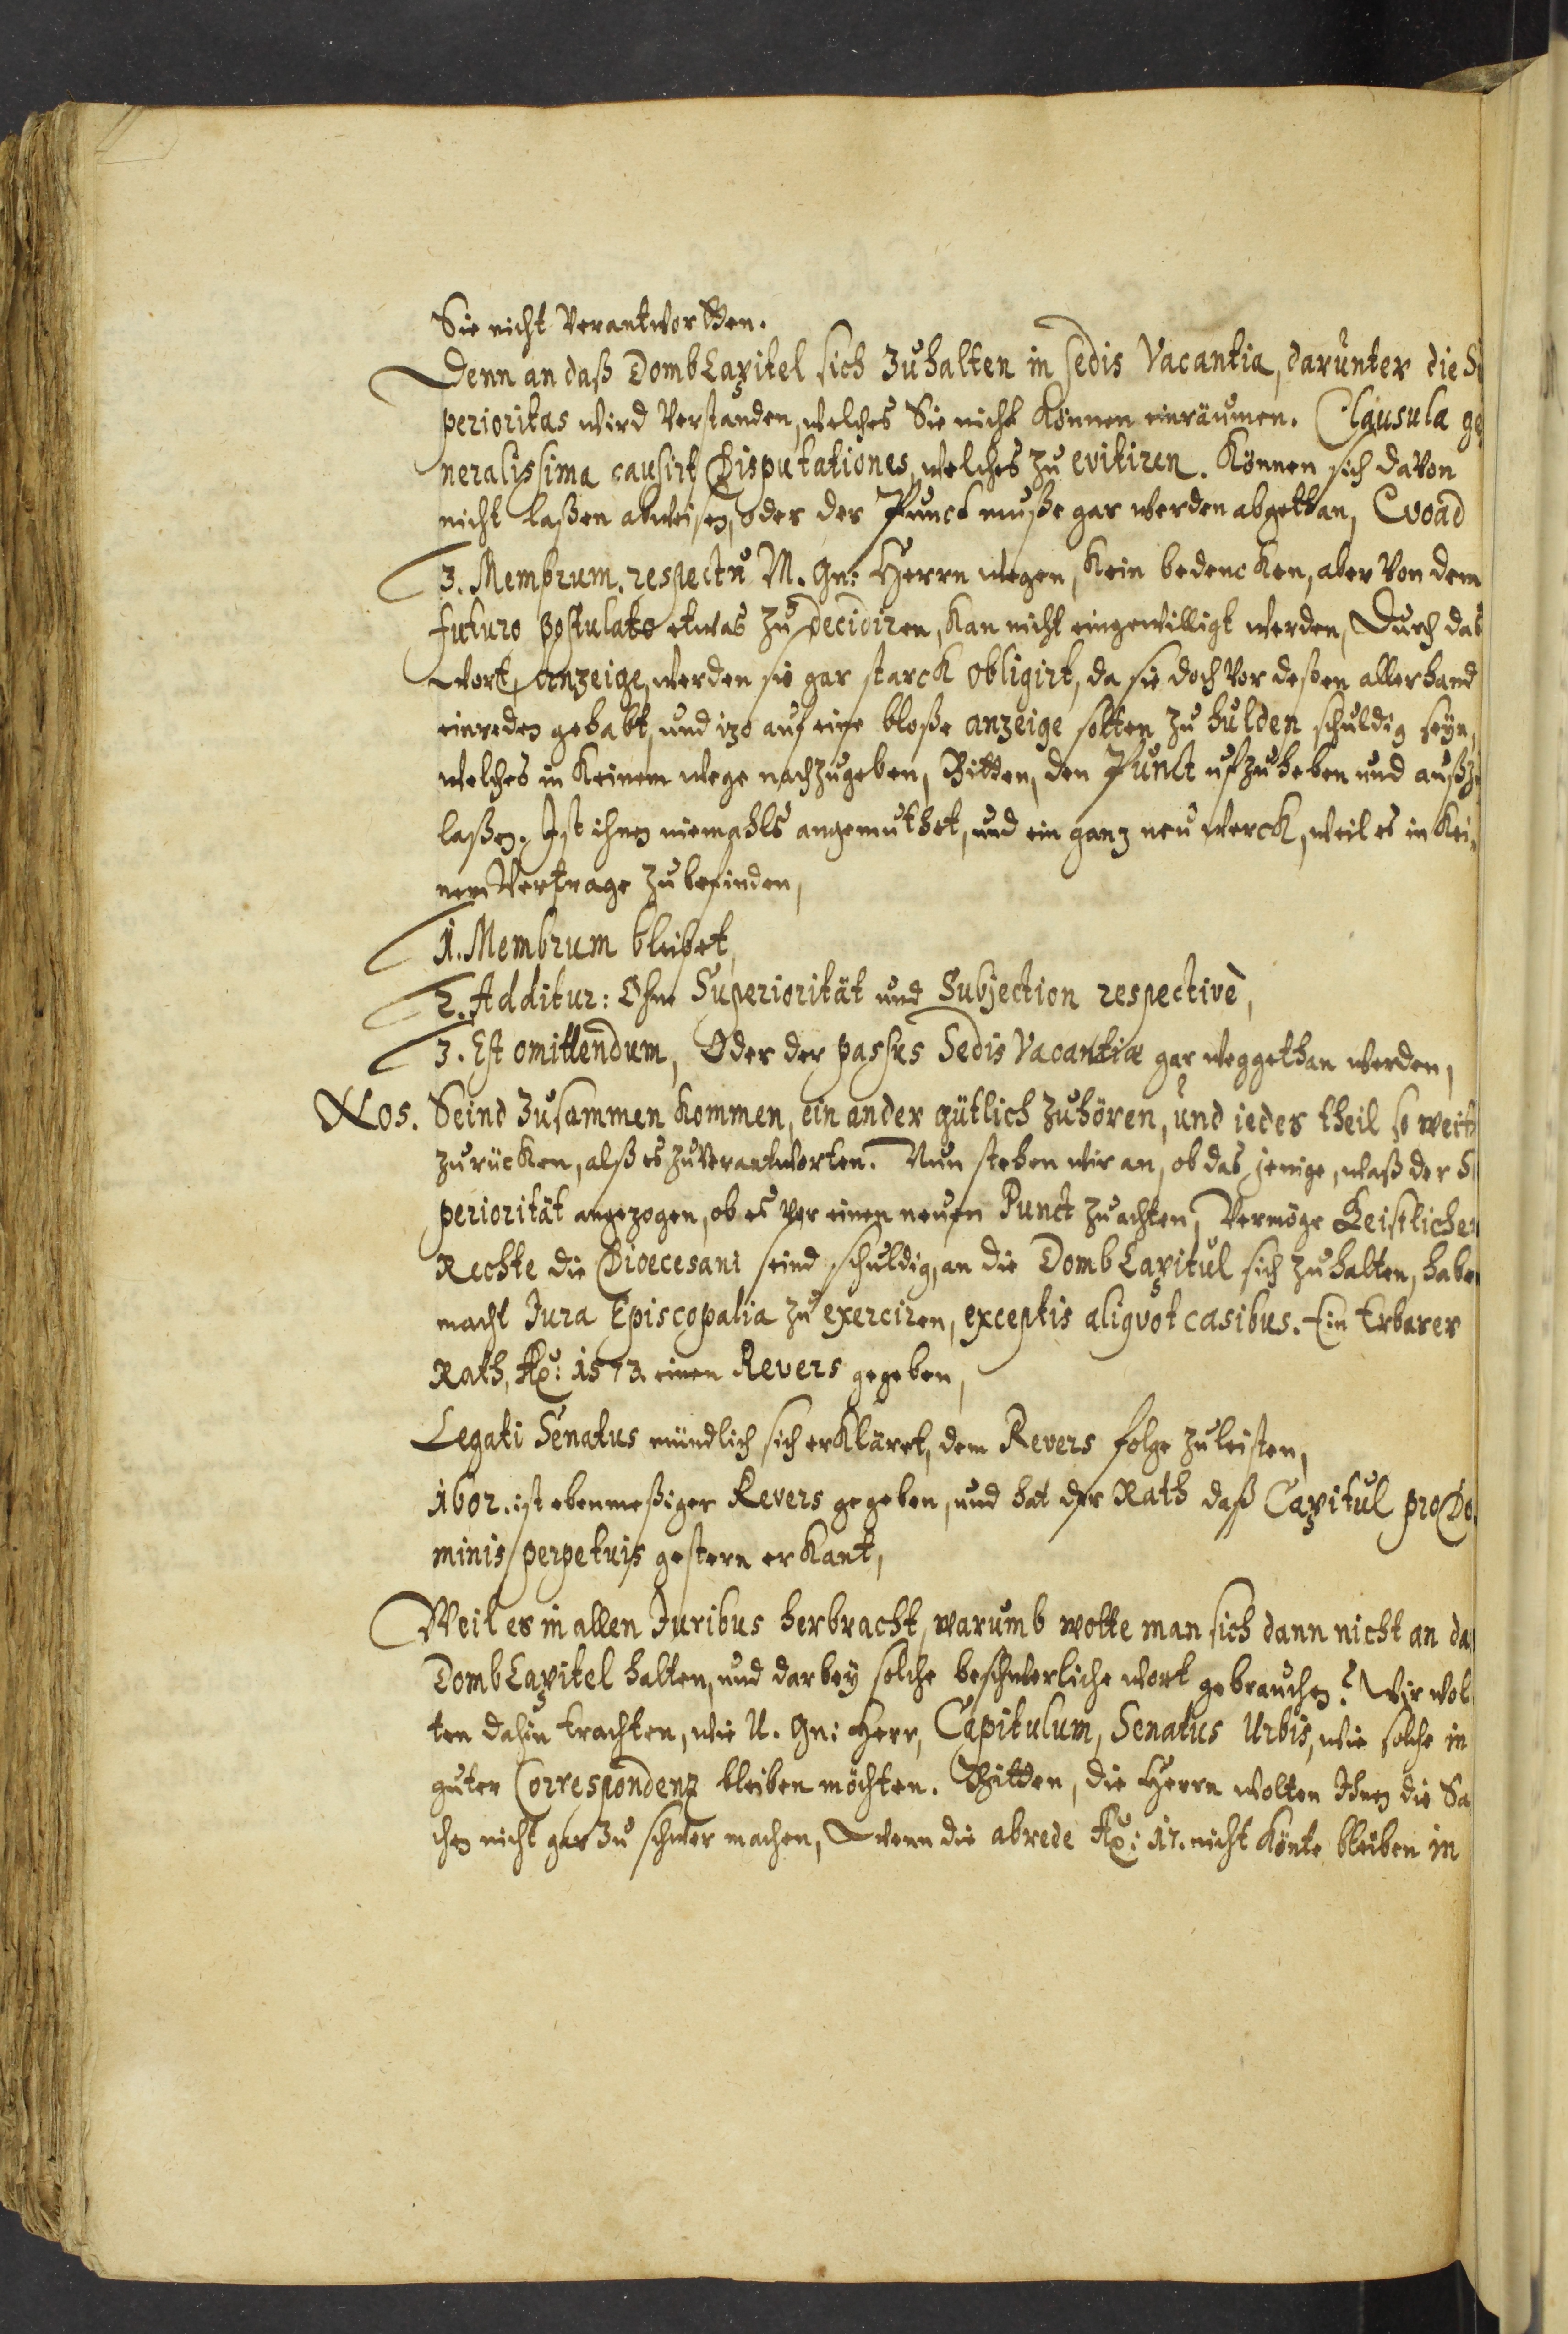 Sie nicht verantwortten.
Denn an daß DombCapitel sich zuhalten in sedis Vacantia, darunter die S
perioritas wird verstanden, welches Sie nicht können einräumen. Clausula ge
neralissima causirt Disputationes, welches zu evitiren. Können sich davon
nicht laßen abweisen, oder der Punct muße gar werden abgethan, Qvoad
3. Membrum. respectu M. Gn: Herrn wegen, kein bedencken, aber von dem
futuro postulato etwas zu decidiren, kan nicht eingewilligt werden, Durch das
wort, Anzeige, werden sie gar starck obligirt, da sie doch vor deßen allerhand
einreden gehabt, und izo auf eine bloße anzeige solten zu hulden schuldig seyn,
welches in keinem wege nachzugeben, Bitten, den Punct ufzuheben und außz
laßen. Ist ihnen niemahls angemuthet, und ein ganz neu werck, weil es in kei-
nem Vertrage zubefinden,
1. Membrum bleibet,
2. Additur: Ohne Superiorität und Subjection respectivè,
3. Est omittendum, Oder der passus Sedis Vacantiæ gar weggethan werden,
Nos. Seind zusammen kommen, ein ander gütlich zuhören, und iedes theil so weit
zurücken, alß es zuverantworten. Nun stehen wir an, ob das jenige, waß der S
periorität angezogen, ob es vor einen neuen Punct zuachten, Vermöge Geistlichen
Rechte die Dioecesani seind schuldig, an die DombCapitul sich zuhalten, haben
macht Jura Episcopalia zu exerciren, exceptis aliqvot casibus. Ein Erbarer
Rath, Ao: 1573. einen Revers gegeben,
Legati Senatus mündlich sich erkläret, dem Revers folge zuleisten,
1602. ist ebenmeßiger Revers gegeben, und hat der Rath daß Capitul pro Do-
minis perpetuis gestern erkant,
Weil es in allen Juribus herbracht, warumb wolte man sich dann nicht an da
DombCapitel halten, und darbey solche beschwerliche wort gebrauchen? Wir wol
ten dahin trachten, wie U. Gn: Herr, Capitulum, Senatus Urbis, wie solche in
guter Correspondenz bleiben möchten. Bitten, die Herrn wolten Ihnen die Sa
chen nicht gar zu schwer machen, Wenn die abrede Ao: 17. nicht könte bleiben in